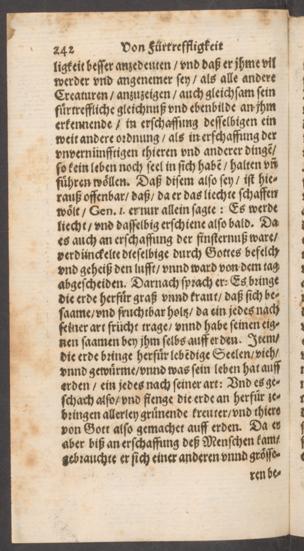 242 Von Fürtreffligkeit
ligkeit besser anzedeuten / vnd daß er jhme vil
werder vnd angenemer sey / als alle andere
Creaturen / anzuzeigen / auch gleichsam sein
fürtreffliche gleichnuß vnd ebenbilde an jhm
erkennende / in erschaffung desselbigen ein
weit andere ordnung / als in erschaffung der
vnvernünfftigen thieren vnd anderer dingē /
so kein leben noch seel in sich habē / halten vñ
führen wöllen. Daß disem also sey / ist hie-
rauß offenbar / daß / da er das liechte schaffen
wölt / Gen. 1. er nur allein sagte : Es werde
liecht / vnd dasselbig erschiene also bald. Da
es auch an erschaffung der finsternuß ware /
verdunckelte dieselbige durch Gottes befelch
vnd geheiß den lufft / vnnd ward von dem tag
abgescheiden. Darnach sprach er: Es bringe
die erde herfür graß vnnd kraut / daß sich be-
saame / vnd fruchtbar holtz / da ein jedes nach
seiner art frücht trage / vnnd habe seinen eig-
nen saamen bey jhm selbs auff erden. Item /
die erde bringe herfür lebēdige Seelen / vieh /
vnnd gewürme / vnnd was sein leben hat auff
erden / ein jedes nach seiner art: Vnd es ge-
schach also / vnd fienge die erde an herfür ze-
bringen allerley grünende kreuter / vnd thiere
von Gott also gemachet auff erden. Da es
aber biß an erschaffung deß Menschen kam /
gebrauchte er sich einer anderen vnnd grösse-
ren be-